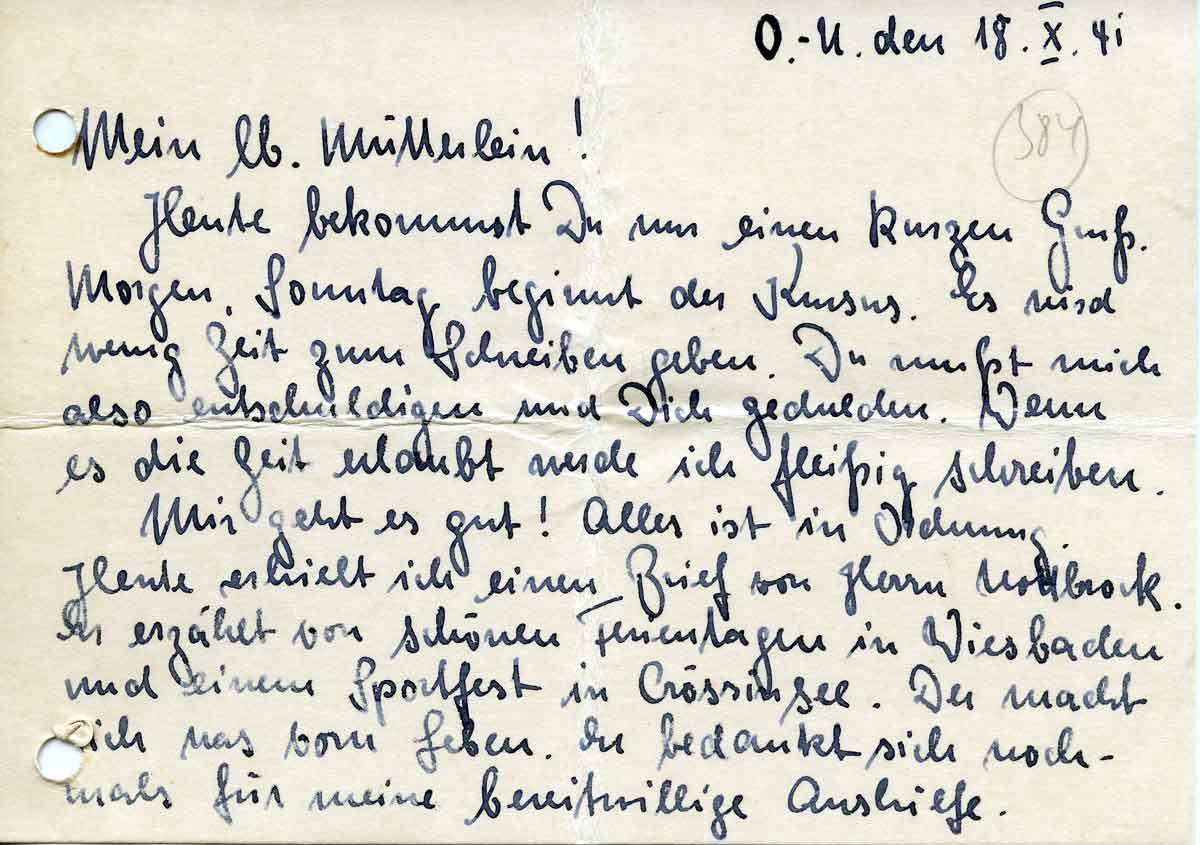 O.-U. den 18. X. 41
384
Mein lb. Mütterlein!
Heute bekommst Du nur einen kurzen Gruß.
Morgen, Sonntag beginnt der Kursus. Es wird
wenig Zeit zum Schreiben geben. Du mußt mich
also entschuldigen und Dich gedulden. Wenn
es die Zeit erlaubt werde ich fleißig schreiben.
Mir geht es gut! Alles ist in Ordnung.
Heute erhielt ich einen Brief von Herrn
Er erzählt von schönen Ferientagen in Wiesbaden
und einem Sportfest in Crössinsee. Der macht
sich was vom Leben. Er bedankt sich noch-
mals für meine bereitwillige Aushilfe.